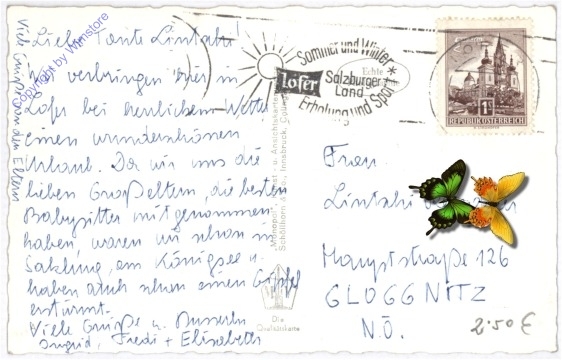 Liebe Tante Lintschi
Wir verbringen hier in
Lofer bei herrlichem Wetter
einen wunderschönen
Urlaub. Da wir uns die
lieben Großeltern, die besten
Babysitter mitgenommen
haben, waren wir schon in
Salzburg, am Königsee u.
haben auch schon einen Gipfel
erstürmt.
Viele Grüße u. Busserln
Ingrid, Fredi + Elisabeth
Viele Grüße von den Eltern
Copyright by Wimstore
Sommer und Winter
lofer
Salzburger
Land
Erholung und Sport
Echte
"Monopol"
Schöllhorn & Co., Innsbruck
Die
Qualitätskarte
1S
REPUBLIK ÖSTERREICH
Frau
Lintschi
Hauptstraße 126
GLOGGNITZ
N.Ö.
2.50 €